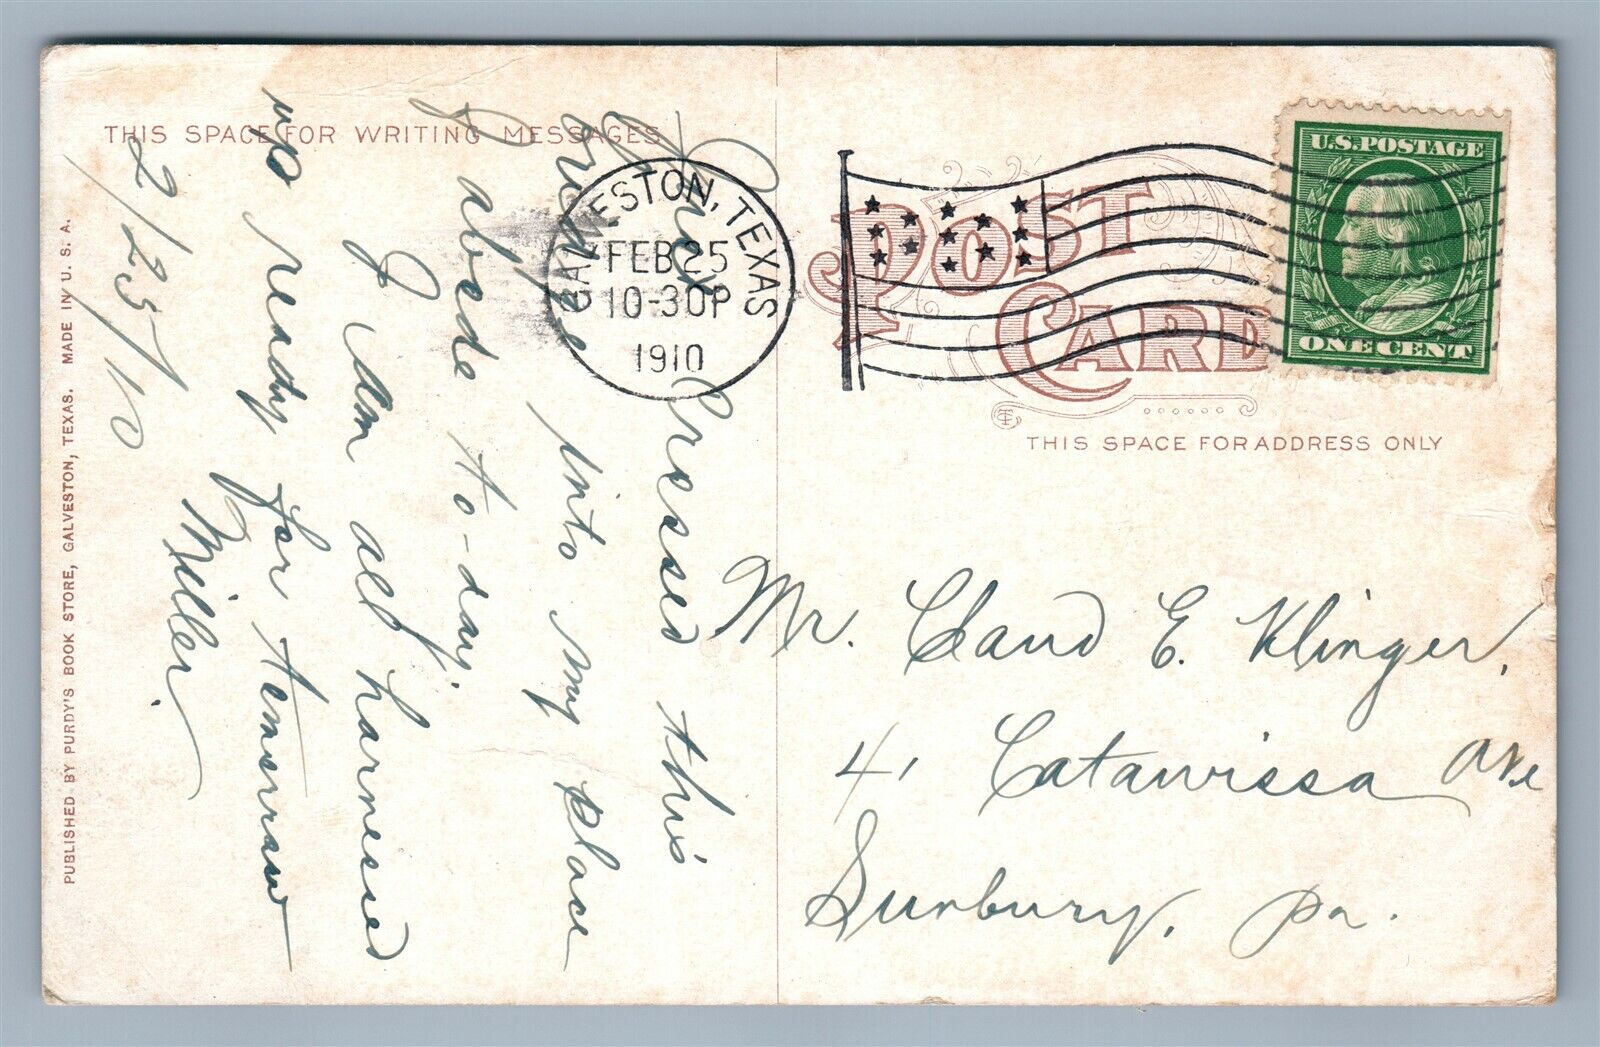 THIS SPACE FOR WRITING MESSAGES
Just Crossed this
bridge into my place
of abode to-day.
I am all harnessed
up ready for tomorrow
Miller.
2/25/10
PUBLISHED BY PURDY'S BOOK STORE, GALVESTON, TEXAS. MADE IN U. S. A.
GALVESTON, TEXAS
FEB 25
10-30P
1910
POST CARD
THIS SPACE FOR ADDRESS ONLY
U.S. POSTAGE
ONE CENT
Mr. Claud E. Klinger,
41 Catawissa Ave
Sunbury, Pa.